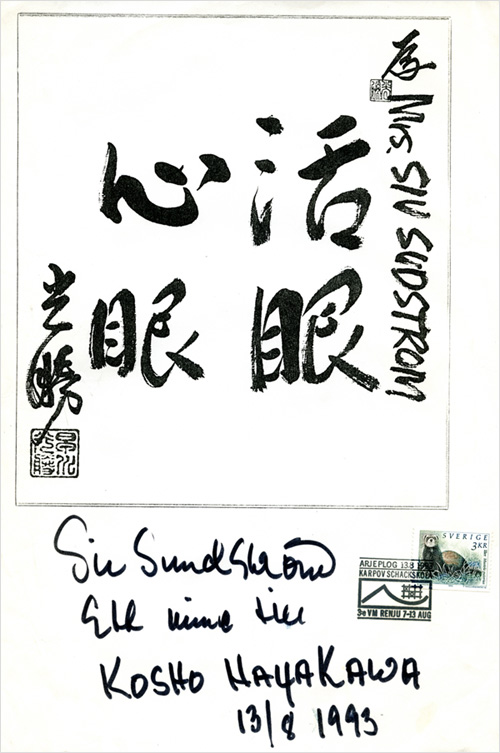 Mrs. SIV SUDSTROM
活眼
心眼
光勝
Siv Sundström
Ett minne till
KOSHO HAYAKAWA
13/8 1993
SVERIGE
3KR
ARJEPLOG 13.8
KARPOV SCHACKSKOLA
3e VM RENJU 7-13 AUG